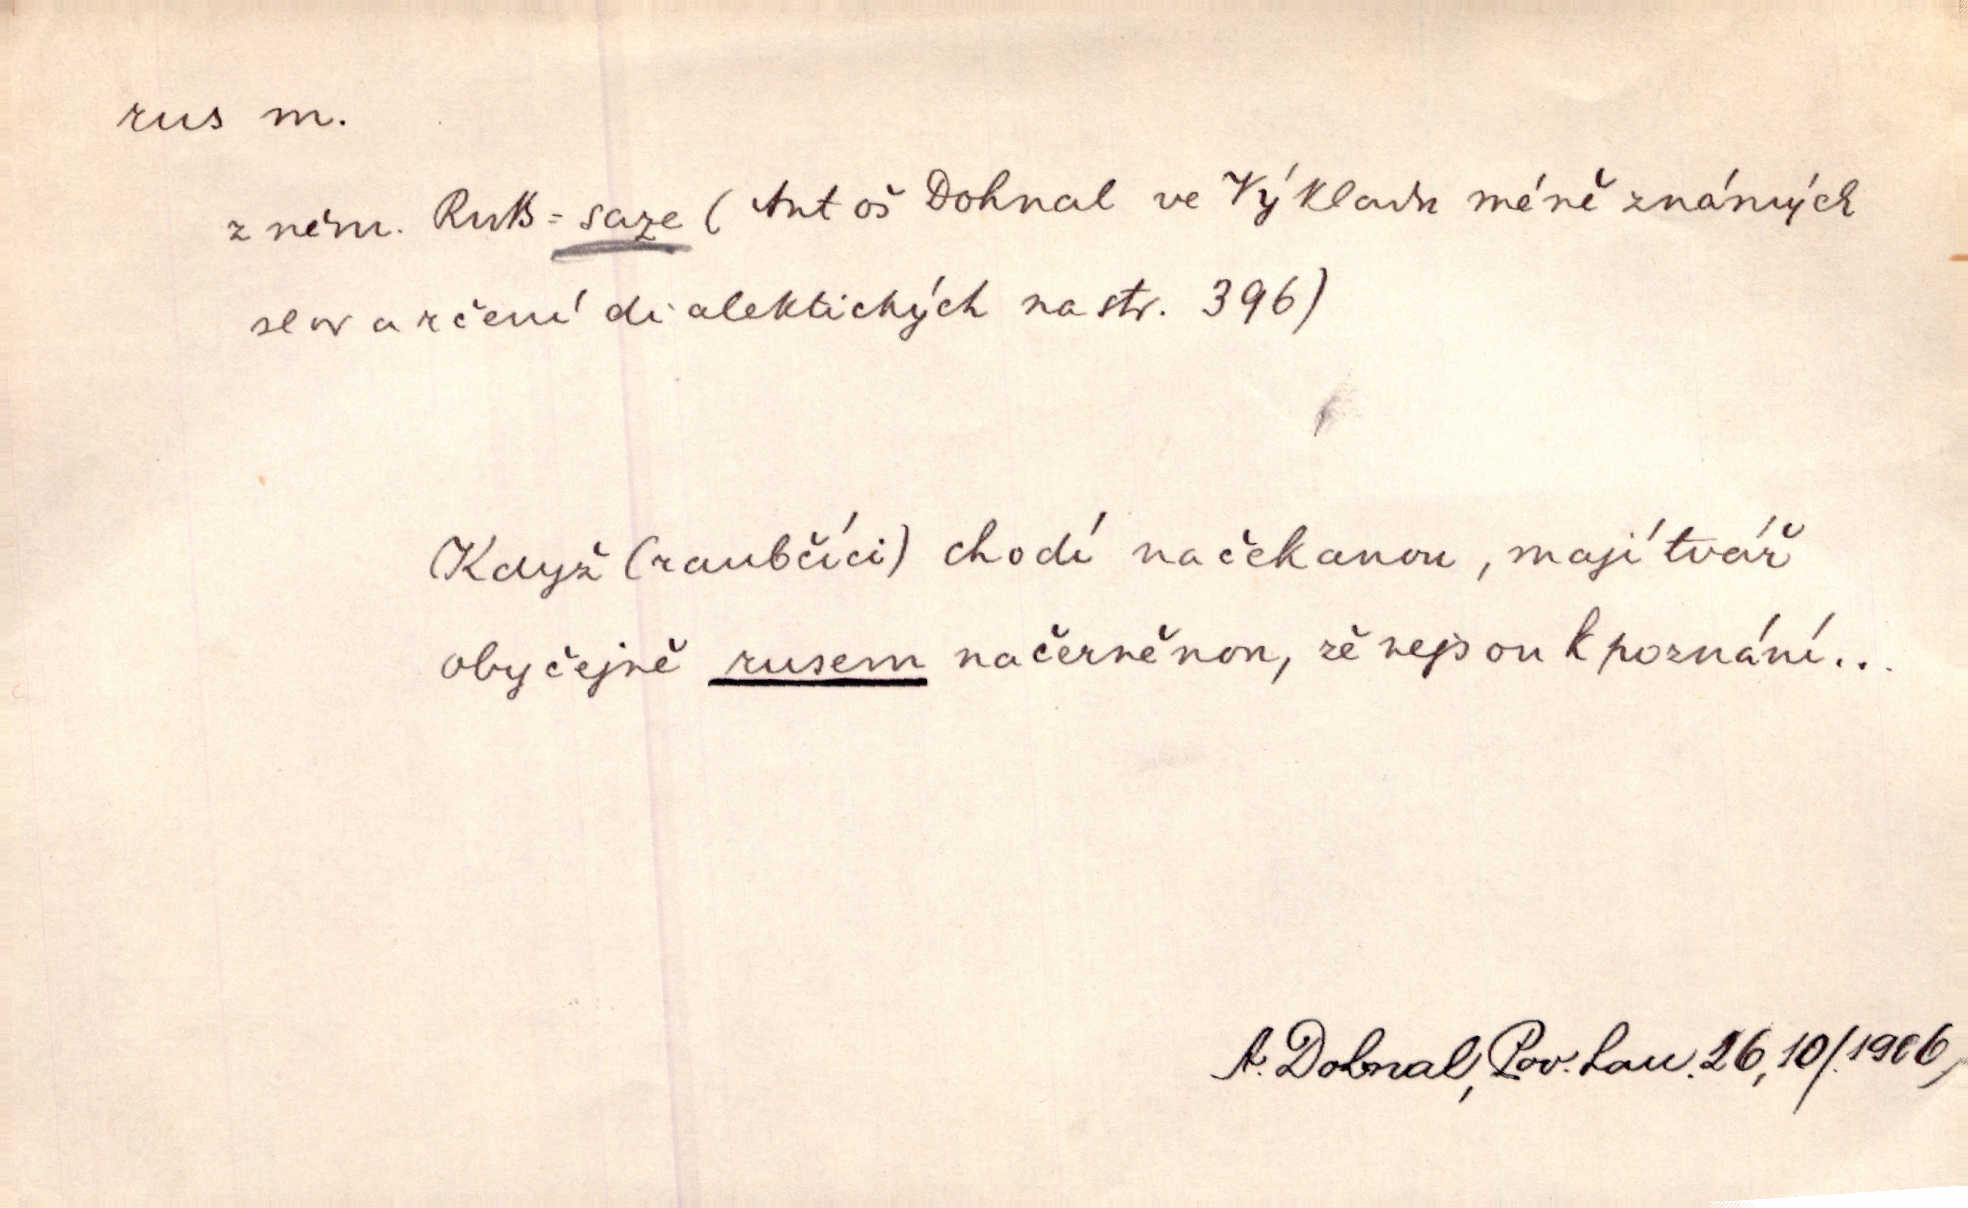 rus m.
z něm. Ruß = saze (Antoš Dohnal ve Výkladu méně známých
slov a rčení dialektických na str. 396)
Když (raubčíci) chodí na čekanou, mají tvář
obyčejně rusem načerněnou, že nejsou k poznání...
A. Dohnal, Pov. Lau. 26, 10/. 1906,